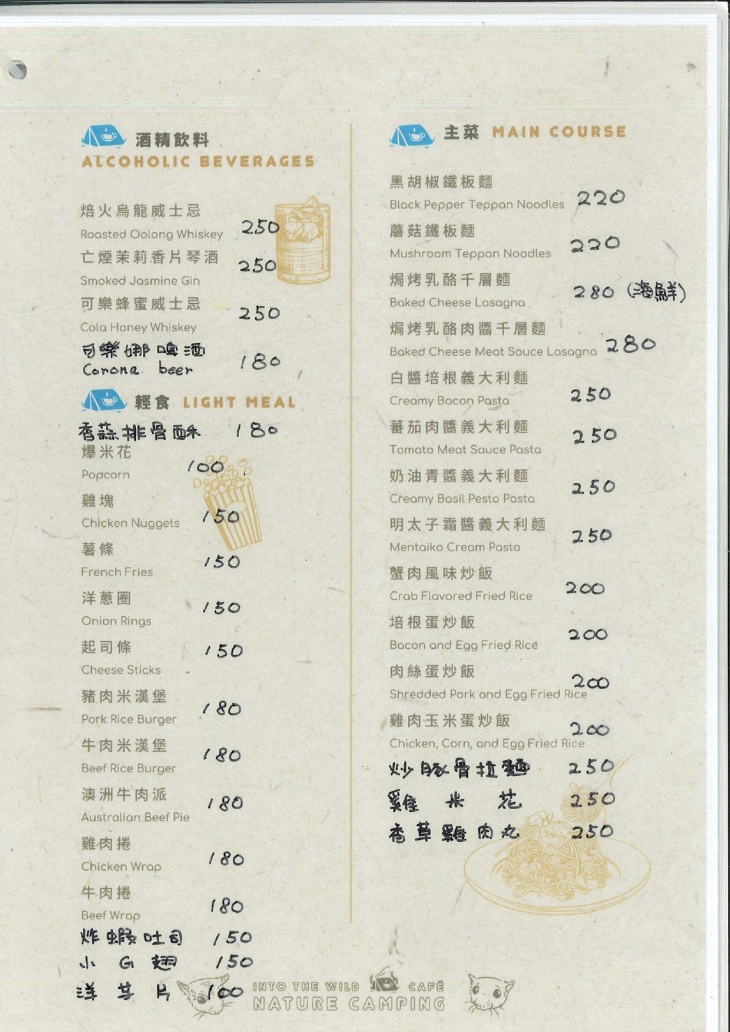 酒精飲料
ALCOHOLIC BEVERAGES
焙火烏龍威士忌
Roasted Oolong Whiskey 250
亡煙茉莉香片琴酒
Smoked Jasmine Gin 250
可樂蜂蜜威士忌
Cola Honey Whiskey 250
可樂娜啤酒
Corona beer 180
輕食 LIGHT MEAL
香蒜排骨酥 180
爆米花
Popcorn 100
雞塊
Chicken Nuggets 150
薯條
French Fries 150
洋蔥圈
Onion Rings 150
起司條
Cheese Sticks 150
豬肉米漢堡
Pork Rice Burger 180
牛肉米漢堡
Beef Rice Burger 180
澳洲牛肉派
Australian Beef Pie 180
雞肉捲
Chicken Wrap 180
牛肉捲
Beef Wrap 180
炸蝦吐司 150
小G翅 150
洋芋片 100
主菜 MAIN COURSE
黑胡椒鐵板麵
Black Pepper Teppan Noodles 220
蘑菇鐵板麵
Mushroom Teppan Noodles 220
焗烤乳酪千層麵
Baked Cheese Lasagna 280 (海鮮)
焗烤乳酪肉醬千層麵
Baked Cheese Meat Sauce Lasagna 280
白醬培根義大利麵
Creamy Bacon Pasta 250
蕃茄肉醬義大利麵
Tomato Meat Sauce Pasta 250
奶油青醬義大利麵
Creamy Basil Pesto Pasta 250
明太子霜醬義大利麵
Mentaiko Cream Pasta 250
蟹肉風味炒飯
Crab Flavored Fried Rice 200
培根蛋炒飯
Bacon and Egg Fried Rice 200
肉絲蛋炒飯
Shredded Pork and Egg Fried Rice 200
雞肉玉米蛋炒飯
Chicken, Corn, and Egg Fried Rice 200
炒豚骨拉麵 250
雞米花 250
香草雞肉丸 250
INTO THE WILD CAFÉ
NATURE CAMPING